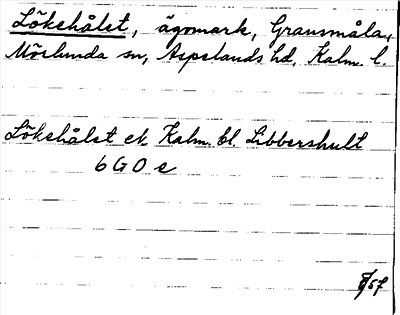 Lökehålet, ägomark, Gransmåla,
Mörlunda sn, Aspelands hd, Kalm. l.
Lökehålet ek Kalm. bl. Libbershult
6 G O e